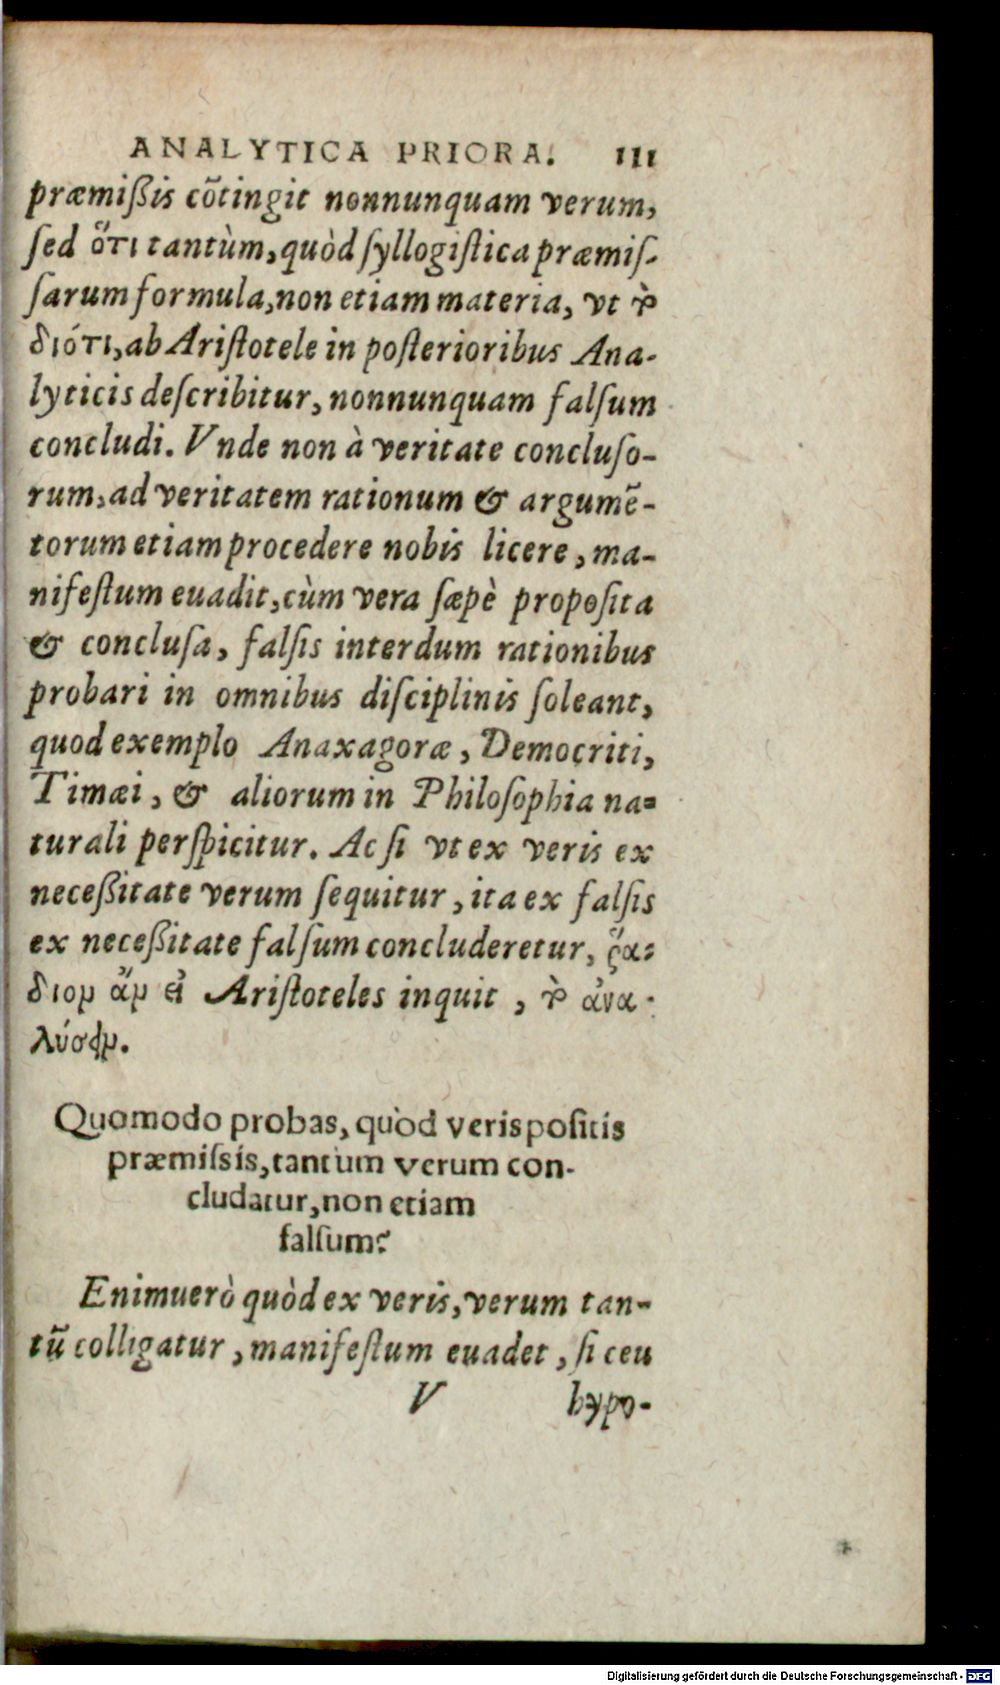 ANALYTICA PRIORA. 111
præmißis cōtingit nonnunquam verum,
ſed ὅτι tantùm, quòd ſyllogiſtica præmiſ-
ſarum formula, non etiam materia, vt τὸ
διότι, ab Ariſtotele in poſterioribus Ana-
lyticis deſcribitur, nonnunquam falſum
concludi. Vnde non à veritate concluſo-
rum, ad veritatem rationum & argumē-
torum etiam procedere nobis licere, ma-
nifeſtum euadit, cùm vera ſæpè propoſita
& concluſa, falſis interdum rationibus
probari in omnibus diſciplinis ſoleant,
quod exemplo Anaxagoræ, Democriti,
Timæi, & aliorum in Philoſophia na-
turali perſpicitur. Ac ſi vt ex veris ex
neceßitate verum ſequitur, ita ex falſis
ex neceßitate falſum concluderetur, ῥᾴ-
διον ἂν εἴη Ariſtoteles inquit, τὸ ἀνα-
λύειν.
Quomodo probas, quòd veris poſitis
præmiſsis, tantùm verum con-
cludatur, non etiam
falſum?
Enimuerò quòd ex veris, verum tan-
tū colligatur, manifeſtum euadet, ſi ceu
V hypo-
Digitalisierung gefördert durch die Deutsche Forschungsgemeinschaft - DFG